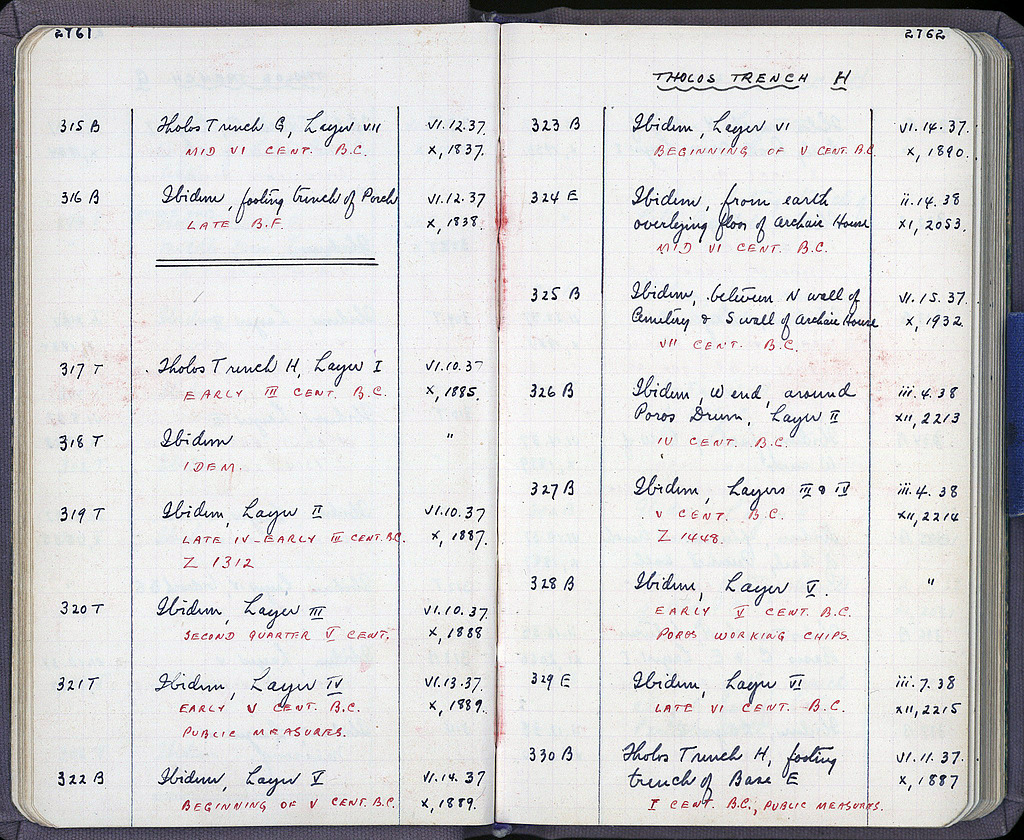 2761
315 B Tholos Trench G, Layer VII VI.12.37.
MID VI CENT. B.C. X, 1837.
316 B Ibidem, footing trench of Porch VI.12.37
LATE B.F. X, 1838.
317 T Tholos Trench H, Layer I VI.10.37
EARLY III CENT. B.C. X, 1885.
318 T Ibidem "
IDEM.
319 T Ibidem, Layer II VI.10.37
LATE IV-EARLY III CENT. B.C. X, 1887.
Z 1312
320 T Ibidem, Layer III VI.10.37.
SECOND QUARTER V CENT. X, 1888
321 T Ibidem, Layer IV VI.13.37.
EARLY V CENT. B.C. X, 1889.
PUBLIC MEASURES.
322 B Ibidem, Layer V VI.14.37
BEGINNING OF V CENT. B.C. X, 1889.
2762
THOLOS TRENCH H
323 B Ibidem, Layer VI VI.14.37.
BEGINNING OF V CENT. B.C. X, 1890.
324 E Ibidem, from earth ii.14.38
overlying floor of Archaic House XI, 2053.
MID VI CENT. B.C.
325 B Ibidem, between N wall of VI.15.37.
Cemetery & S wall of Archaic House X, 1932.
VII CENT. B.C.
326 B Ibidem, W end, around iii.4.38
Poros Drum, Layer II XII, 2213
IV CENT. B.C.
327 B Ibidem, Layers III & IV iii.4.38
V CENT. B.C. XII, 2214
Z 1448.
328 B Ibidem, Layer V. "
EARLY V CENT. B.C.
POROS WORKING CHIPS.
329 E Ibidem, Layer VI iii.7.38
LATE VI CENT. B.C. XII, 2215
330 B Tholos Trench H, footing VI.11.37.
trench of Base E X, 1887
I CENT. B.C., PUBLIC MEASURES.